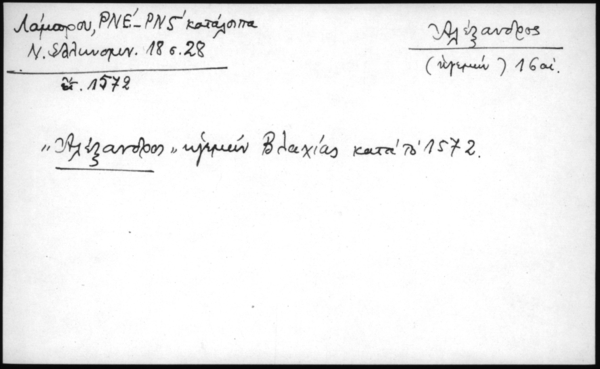 Λάμπρου, ΡΝΕ΄-ΡΝς΄ κατάλοιπα
Ν. Ἑλληνομν. 18 σ. 28
ἔτ. 1572
Ἀλέξανδρος
(ἡγεμών) 16 αἰ.
"Ἀλέξανδρος" ἡγεμών Βλαχίας κατά τό 1572.